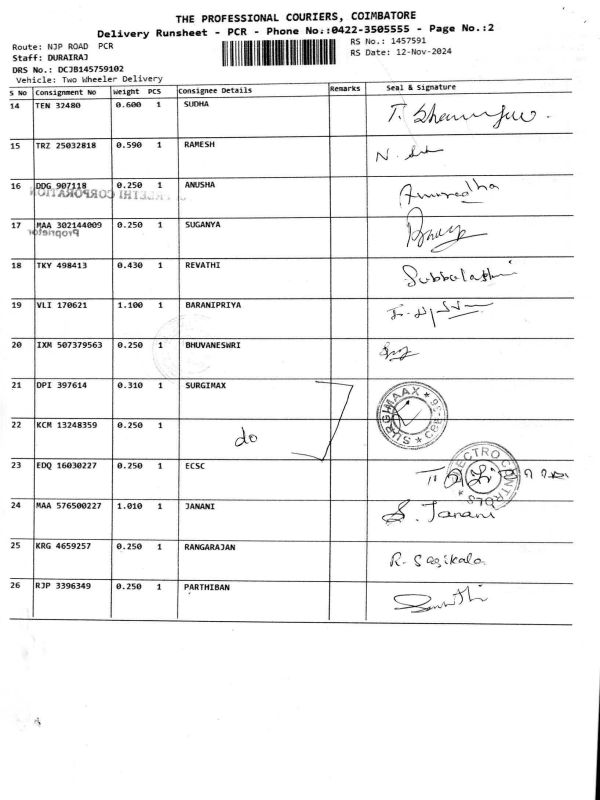 THE PROFESSIONAL COURIERS, COIMBATORE
Delivery Runsheet - PCR - Phone No.:0422-3505555 - Page No.:2
Route: NJP ROAD PCR
RS No.: 1457591
Staff: DURAIRAJ
RS Date: 12-Nov-2024
DRS No.: DCJB145759102
Vehicle: Two Wheeler Delivery
S No Consignment No Weight PCS Consignee Details Remarks Seal & Signature
14 TEN 32480 0.600 1 SUDHA
15 TRZ 25032818 0.590 1 RAMESH
16 DDG 907118 0.250 1 ANUSHA Anuradha
CORPORATION
17 MAA 302144009 0.250 1 SUGANYA
Proprietor
18 TKY 498413 0.430 1 REVATHI Subbalakshmi
19 VLI 170621 1.100 1 BARANIPRIYA
20 IXM 507379563 0.250 1 BHUVANESWRI
21 DPI 397614 0.310 1 SURGIMAX SURGIMAAX
22 KCM 13248359 0.250 1 do
23 EDQ 16030227 0.250 1 ECSC CONTROLS
24 MAA 576500227 1.010 1 JANANI S. Janani
25 KRG 4659257 0.250 1 RANGARAJAN R. Sasikala
26 RJP 3396349 0.250 1 PARTHIBAN